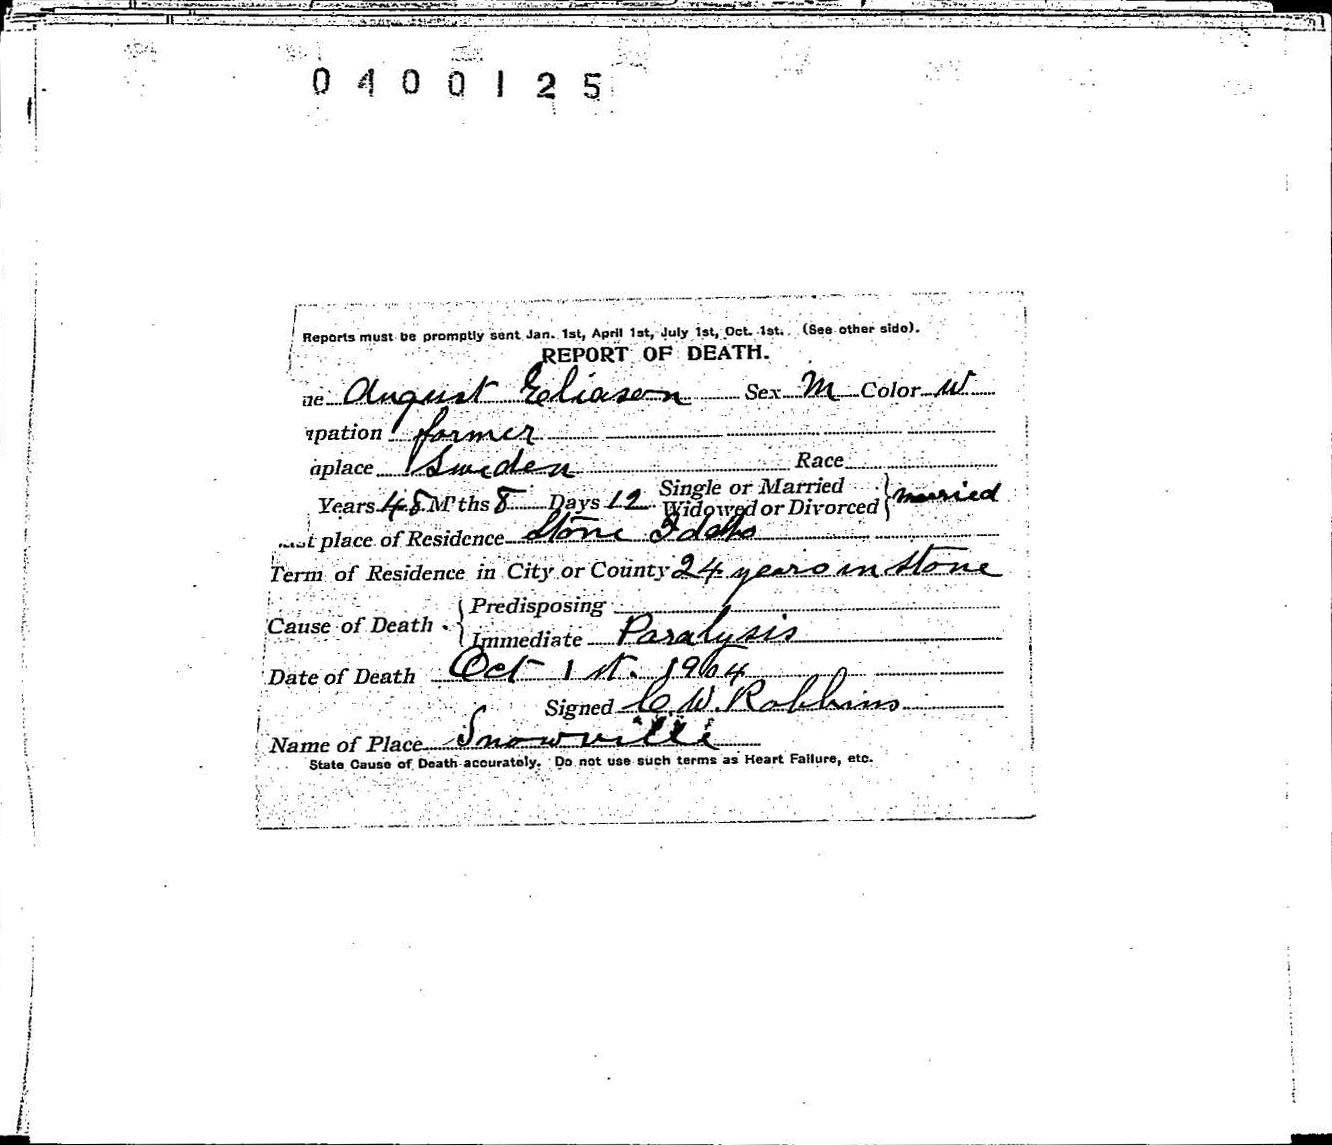 0400125
Reports must be promptly sent Jan. 1st, April 1st, July 1st, Oct. 1st. (See other side).
REPORT OF DEATH.
ne August Eliason Sex M Color W
upation farmer
hplace Sweden Race
Years 48 M'ths 8 Days 12 Single or Married Widowed or Divorced } married
st place of Residence Stone Idaho
Term of Residence in City or County 24 years in Stone
Cause of Death { Predisposing
Immediate Paralysis
Date of Death Oct 1st. 1904
Signed C. W. Robbins
Name of Place Snowville
State Cause of Death accurately. Do not use such terms as Heart Failure, etc.